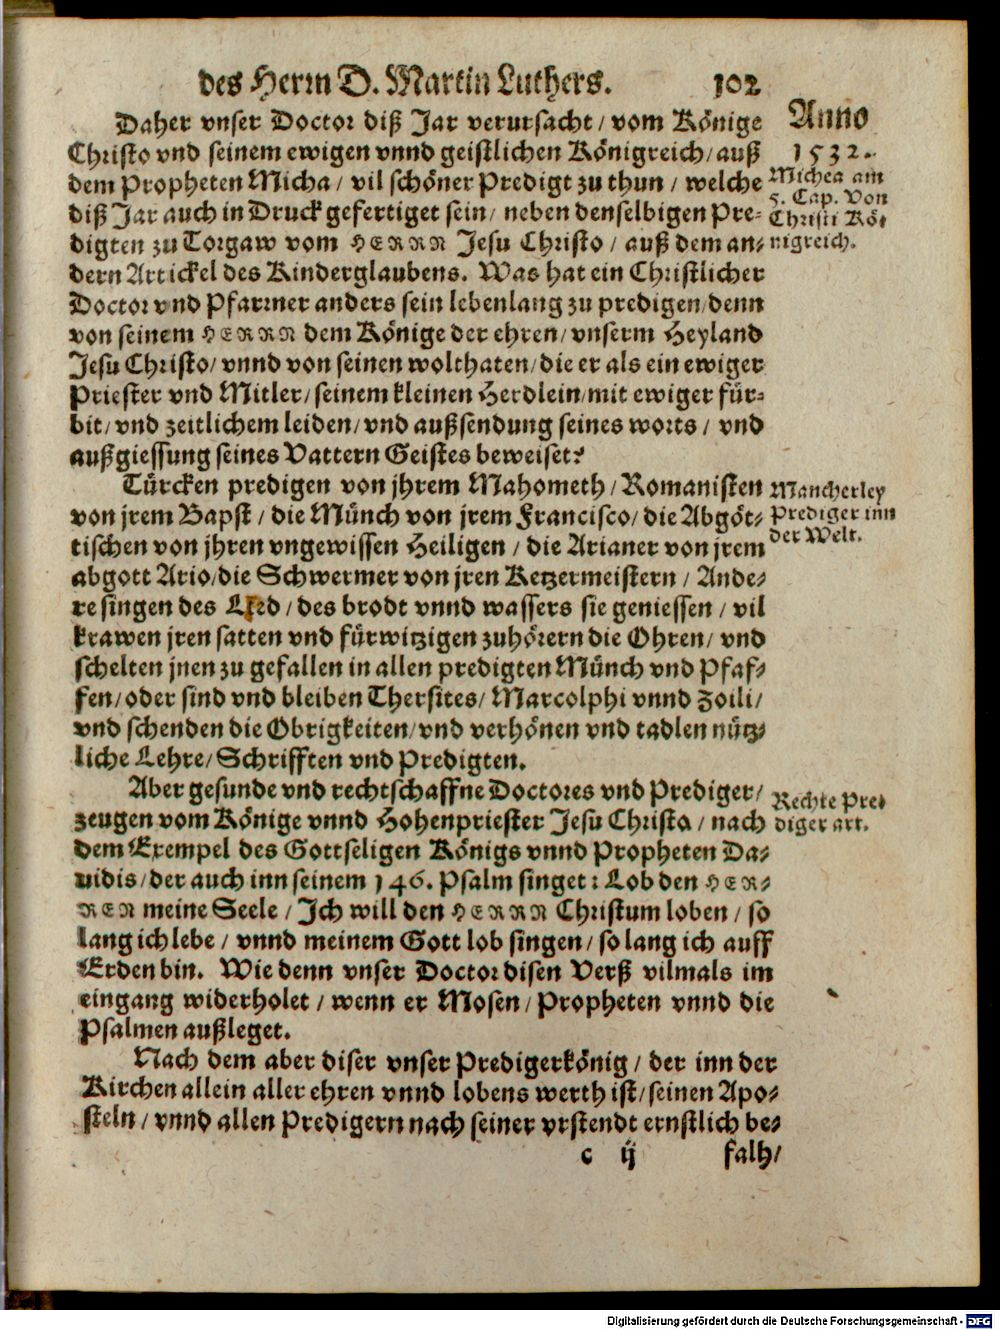 des Herrn D. Martin Luthers. 102
Anno
1532.
Daher vnser Doctor diß Jar verursacht / vom Könige
Christo vnd seinem ewigen vnnd geistlichen Königreich / auß
dem Propheten Micha / vil schöner Predigt zu thun / welche
diß Jar auch in Druck gefertiget sein / neben denselbigen Pre-
digten zu Torgaw vom HERRN Jesu Christo / auß dem an-
dern Artickel des Kinderglaubens. Was hat ein Christlicher
Doctor vnd Pfarrner anders sein lebenlang zu predigen / denn
von seinem HERRN dem Könige der ehren / vnserm Heyland
Jesu Christo / vnnd von seinen wolthaten / die er als ein ewiger
Priester vnd Mitler / seinem kleinen Herdlein / mit ewiger für-
bit / vnd zeitlichem leiden / vnd außsendung seines worts / vnd
außgiessung seines Vattern Geistes beweiset?
Michea am
5. Cap. Von
Christi Kö-
nigreich.
Türcken predigen von jhrem Mahometh / Romanisten
von jrem Bapst / die Münch von jrem Francisco / die Abgöt-
tischen von jhren vngewissen Heiligen / die Arianer von jrem
abgott Ario / die Schwermer von jren Ketzermeistern / Ande-
re singen des Lied / des brodt vnnd wassers sie geniessen / vil
krawen jren satten vnd fürwitzigen zuhörern die Ohren / vnd
schelten jnen zu gefallen in allen predigten Münch vnd Pfaf-
fen / oder sind vnd bleiben Thersites / Marcolphi vnnd Zoili /
vnd schenden die Obrigkeiten / vnd verhönen vnd tadlen nütz-
liche Lehre / Schrifften vnd Predigten.
Mancherley
Prediger inn
der Welt.
Aber gesunde vnd rechtschaffne Doctores vnd Prediger /
zeugen vom Könige vnnd Hohenpriester Jesu Christo / nach
dem Exempel des Gottseligen Königs vnnd Propheten Da-
uidis / der auch inn seinem 146. Psalm singet: Lob den HER-
REN meine Seele / Ich will den HERRN Christum loben / so
lang ich lebe / vnnd meinem Gott lob singen / so lang ich auff
Erden bin. Wie denn vnser Doctor disen Verß vilmals im
eingang widerholet / wenn er Mosen / Propheten vnnd die
Psalmen außleget.
Rechte Pre-
diger art.
Nach dem aber diser vnser Predigerkönig / der inn der
Kirchen allein aller ehren vnnd lobens werth ist / seinen Apo-
steln / vnnd allen Predigern nach seiner vrstendt ernstlich be-
c ij falh /
Digitalisierung gefördert durch die Deutsche Forschungsgemeinschaft - DFG